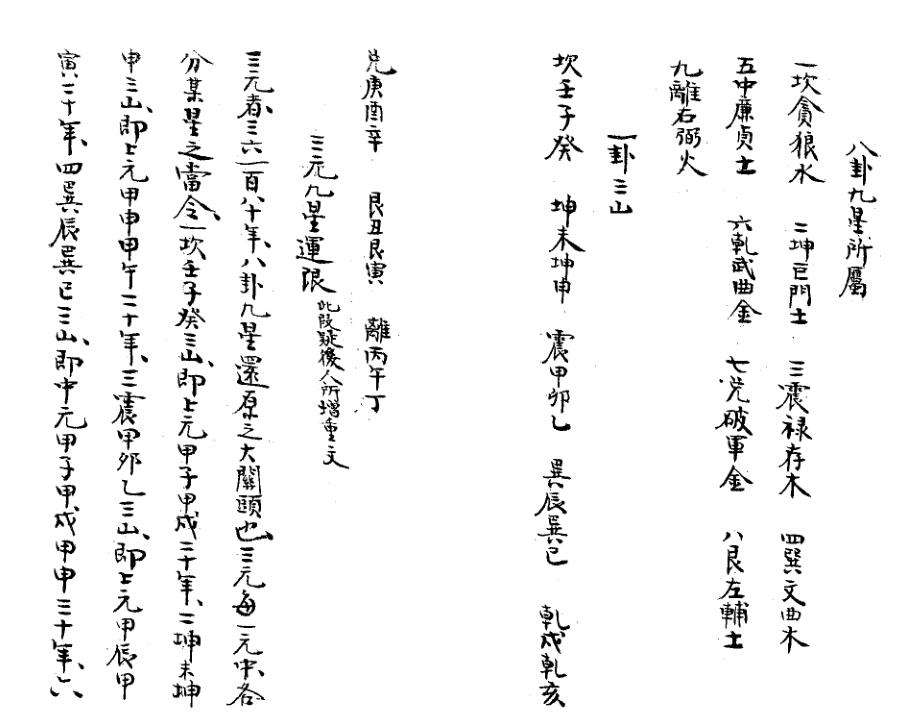 八卦九星所屬
一坎貪狼水 二坤巨門土 三震禄存木 四巽文曲木
五中廉貞土 六乹武曲金 七兌破軍金 八艮左輔土
九離右弼火
一卦三山
坎壬子癸 坤未坤申 震甲卯乙 巽辰巽巳 乹戌乹亥
兌庚酉辛 艮丑艮寅 離丙午丁
三元九星運限 此段疑後人所增重文
三元者、三六一百八十年、八卦九星還原之大關頭也、三元每一元中、各
分某星之當令、一坎壬子癸三山、即上元甲子甲戌二十年、二坤未坤
申三山、即上元甲申甲午二十年、三震甲卯乙三山、即上元甲辰甲
寅二十年、四巽辰巽巳三山、即中元甲子甲戌甲申三十年、六